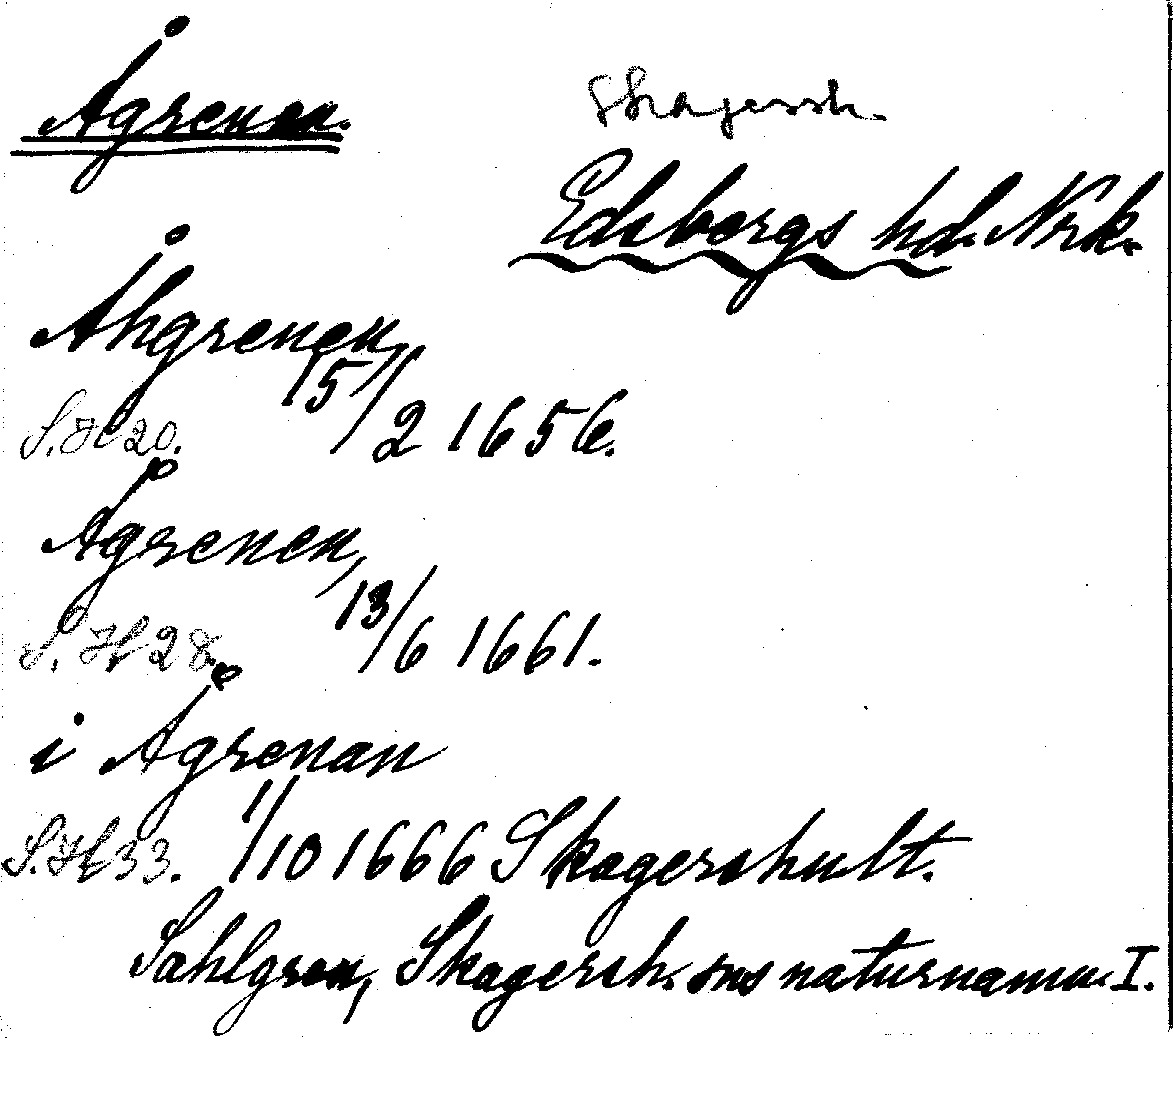 Ågrenen.
Skagersh.
Edsbergs hd. Nrk.
Åhgrenen,
S. H 20. 15/2 1656.
Ågrenen,
S. H 28. 13/6 1661.
i Ågrenan
S. H 33. 1/10 1666 Skagershult.
Sahlgren, Skagersh. sns naturnamn. I.